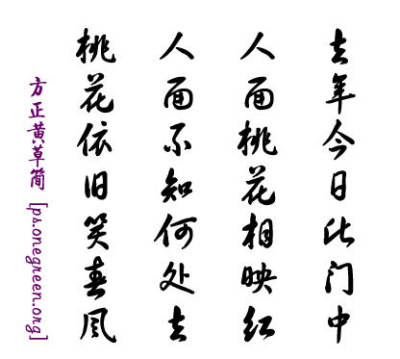 去年今日此门中
人面桃花相映红
人面不知何处去
桃花依旧笑春风
方正黄草简 [ps.onegreen.org]